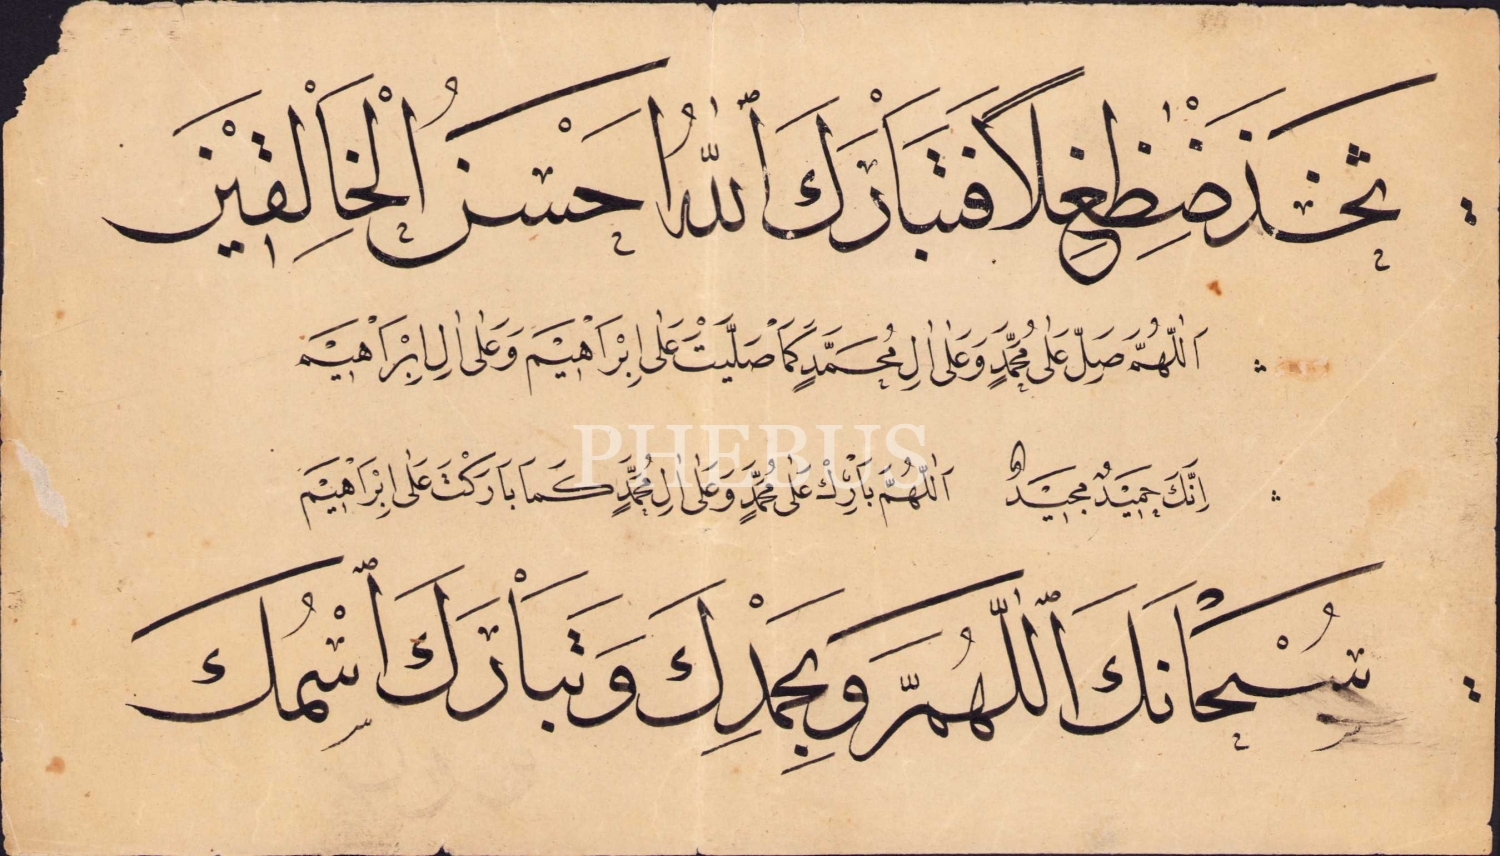 ثَخَذْضَظَغِلًا فَتَبَارَكَ ٱللّٰهُ اَحْسَنُ الْخَالِقِيْنَ
اَللّٰهُمَّ صَلِّ عَلٰى مُحَمَّدٍ وَعَلٰى اٰلِ مُحَمَّدٍ كَمَا صَلَّيْتَ عَلٰى اِبْرَاهِيْمَ وَعَلٰى اٰلِ اِبْرَاهِيْمَ
PHEBUS
اِنَّكَ حَمِيْدٌ مَجِيْدٌ اَللّٰهُمَّ بَارِكْ عَلٰى مُحَمَّدٍ وَعَلٰى اٰلِ مُحَمَّدٍ كَمَا بَارَكْتَ عَلٰى اِبْرَاهِيْمَ
سُبْحَانَكَ ٱللّٰهُمَّ وَبِحَمْدِكَ وَتَبَارَكَ ٱسْمُكَ